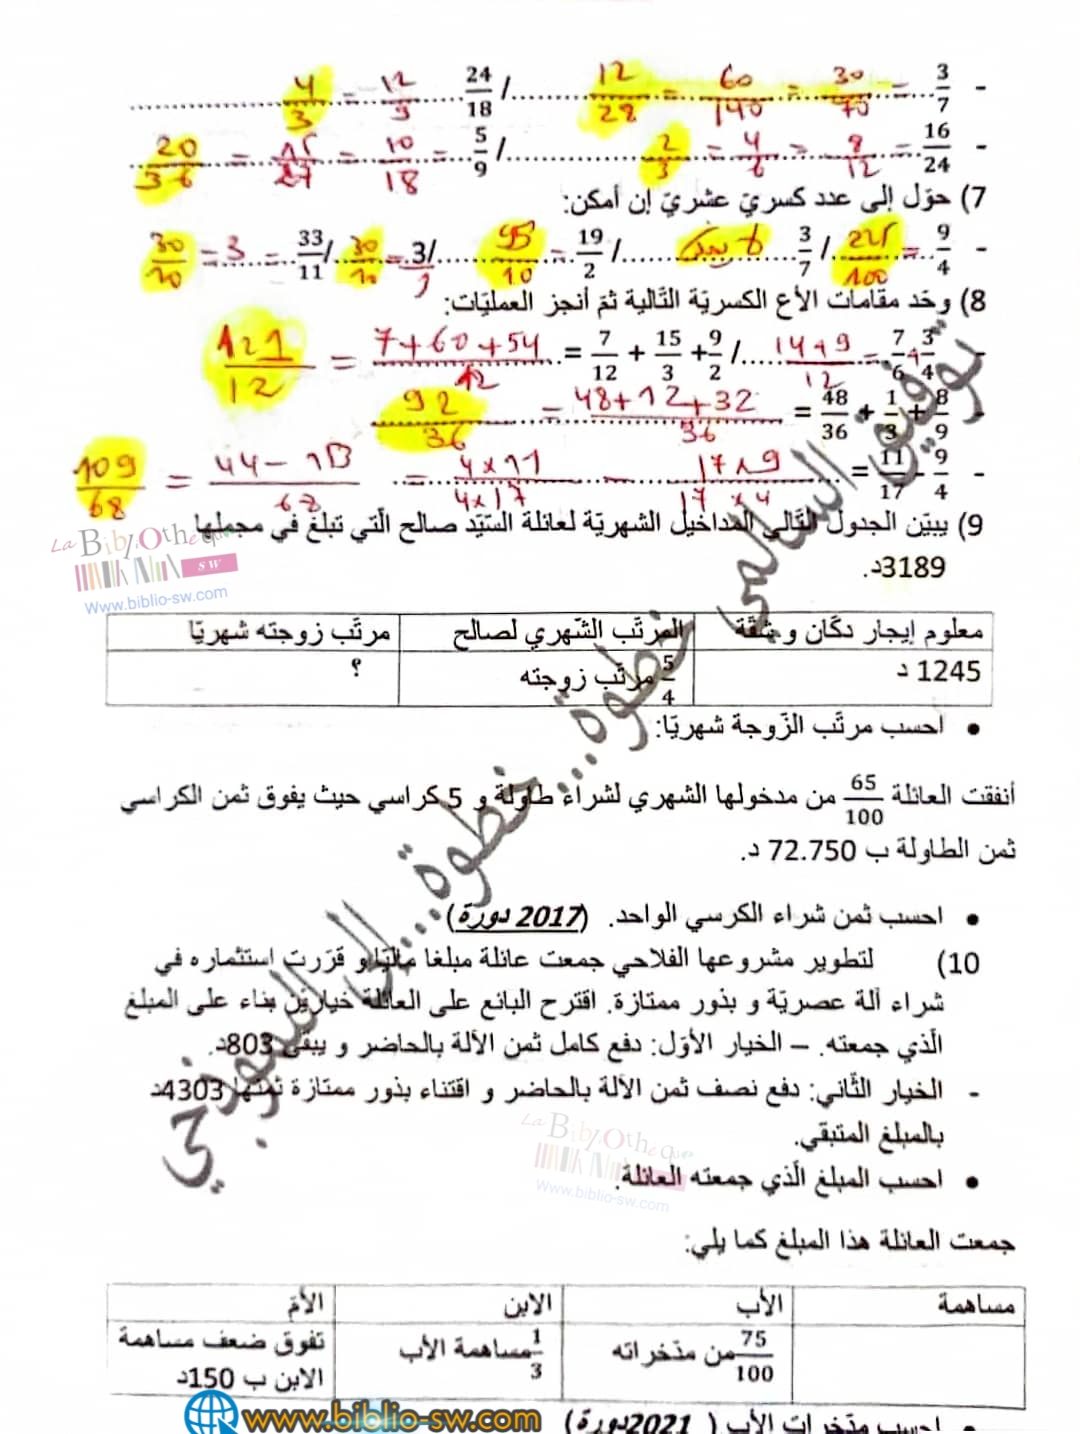 - 3/7 = 30/70 = 60/140 = 12/28 / 24/18 = 12/9 = 4/3
- 16/24 = 8/12 = 4/6 = 2/3 / 5/9 = 10/18 = 15/27 = 20/36
7) حوّل إلى عدد كسريّ عشريّ إن أمكن:
- 9/4 = 225/100 / 3/7 لا يمكن / 19/2 = 95/10 / 3/1 = 30/10 / 33/11 = 3 = 30/10
8) وحّد مقامات الأع الكسريّة التّالية ثمّ أنجز العمليّات:
- 3/4 + 7/6 = 14+9/12 / 9/2 + 15/3 + 7/12 = 7+60+54/12 = 121/12
- 8/9 + 1/3 + 48/36 = 48+12+32/36 = 92/36
- 9/4 - 11/17 = 17x9/17x4 - 4x11/4x17 = 44-153/68 = 109/68
9) يبيّن الجدول التّالي المداخيل الشهريّة لعائلة السّيّد صالح الّتي تبلغ في مجملها
3189د.
La BibliOthèque SW
www.biblio-sw.com
معلوم إيجار دكّان و شقّة | المرتّب الشّهري لصالح | مرتّب زوجته شهريّا
1245 د | 5/4 مرتّب زوجته | ؟
• احسب مرتّب الزّوجة شهريّا:
أنفقت العائلة 65/100 من مدخولها الشهري لشراء طاولة و 5 كراسي حيث يفوق ثمن الكراسي
ثمن الطاولة ب 72.750 د.
• احسب ثمن شراء الكرسي الواحد. (دورة 2017)
10) لتطوير مشروعها الفلاحي جمعت عائلة مبلغا ماليّا و قرّرت استثماره في
شراء آلة عصريّة و بذور ممتازة. اقترح البائع على العائلة خيارين بناء على المبلغ
الّذي جمعته. – الخيار الأوّل: دفع كامل ثمن الآلة بالحاضر و يبقى 803د.
- الخيار الثّاني: دفع نصف ثمن الآلة بالحاضر و اقتناء بذور ممتازة ثمنها 4303د
بالمبلغ المتبقي.
• احسب المبلغ الّذي جمعته العائلة.
La BibliOthèque
www.biblio-sw.com
جمعت العائلة هذا المبلغ كما يلي:
مساهمة | الأب | الابن | الأمّ
75/100 من مدّخراته | 1/3 مساهمة الأب | تفوق ضعف مساهمة
الابن ب 150د
• احسب مدّخرات الأب ( دورة 2021)
www.biblio-sw.com
توفيق السالمي خطوة... خطوة... إلى النموذجي